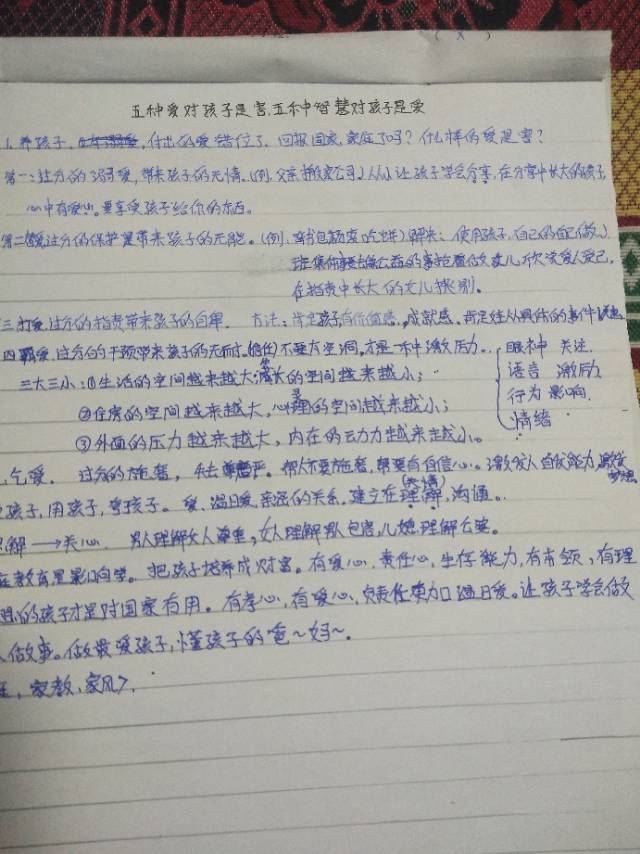 五种爱对孩子是害,五种智慧对孩子是爱
1.养孩子,付出的爱错位了,回报国家,家庭了吗?什么样的爱是害?
第一:过分的溺爱,带来孩子的无情。(例,父亲搬家公司)从小让孩子学会分享,在分享中长大的孩子,
心中有爱心。要享受孩子给你的东西。
第二过分的保护是带来孩子的无能。(例,解来:使用孩子,自己的自己做。
在指责中长大的女儿挑剔。
三过分的指责带来孩子的自卑. 方法:肯定孩子有价值感,成就感,肯定从具体的事件
四霸爱,过分的干预带来孩子的无耐,信任不要太空洞,才是一种激励力。
眼神 关注.
语言 激励
行为 影响.
情绪
三大三小:①生活的空间越来越大,成长的空间越来越小;
②住房的空间越来越大,心灵的空间越来越小;
③外面的压力越来越大,内在的动力越来越小。
气爱. 过分的施舍,失去尊严。帮人不要施舍,帮要有自信心。激发人自救能力,
孩子,用孩子,夸孩子。爱、溺爱亲密的关系,建立在理解,沟通。
解→关心. 男人理解女人尊重,女人理解男人包容,儿媳理解公婆。
教育是影响学。把孩子培养成财富。有爱心,责任心,生存能力,有本领,有理
的孩子才是对国家有用。有孝心,有爱心,让孩子学会做
做事。做最爱孩子,懂孩子的爸~妈~.
家教,家风>.